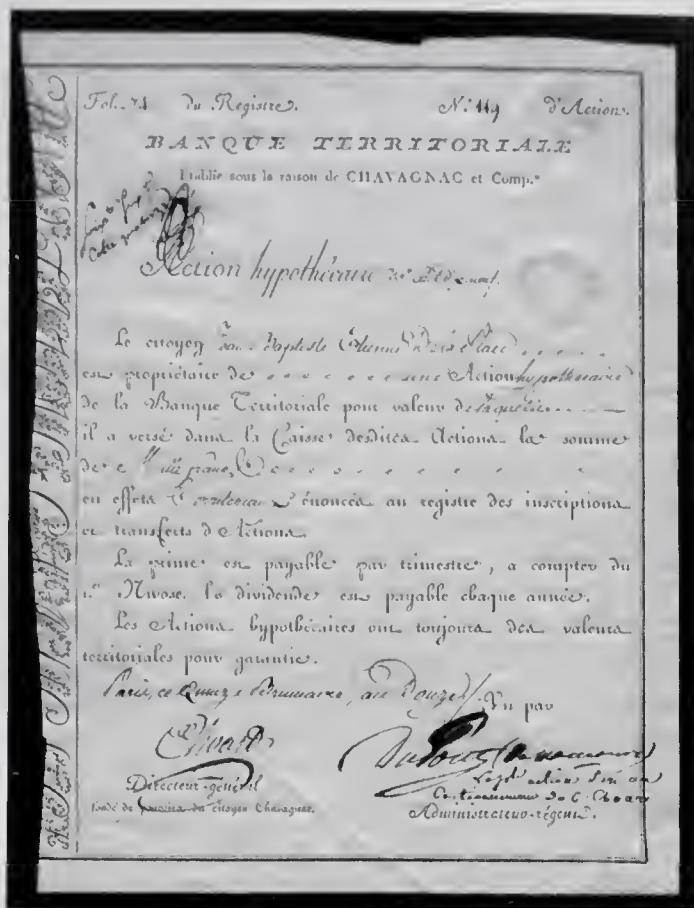 Fol. 74 du Registre. N.º 119 d'Action.
BANQUE TERRITORIALE
Etablie sous la raison de CHAVAGNAC et Comp.e
Action hypothécaire
Le citoyen Jean Baptiste Etienne
est propriétaire de une Action hypothécaire
de la Banque Territoriale pour valeur de laquelle
il a versé dans la Caisse desdites Actions la somme
de mille francs
en effets énoncés au registre des inscriptions
et transferts d'Actions.
La prime est payable par trimestre, a compter du
1.er Nivose. le dividende est payable chaque année.
Les Actions hypothécaires ont toujours des valeurs
territoriales pour garantie.
Paris, ce Quinze Brumaire, an Douze Vu par
Directeur-général
fondé de pouvoirs du citoyen Chavagnac. Administrateur-régent.